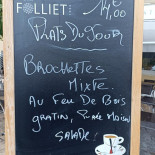 FOLLIET
14€,00
PLATS DU JOUR
BROCHETTES
MIXTE.
AU FEU DE BOIS
GRATIN, PURÉE MAISON
SALADE!